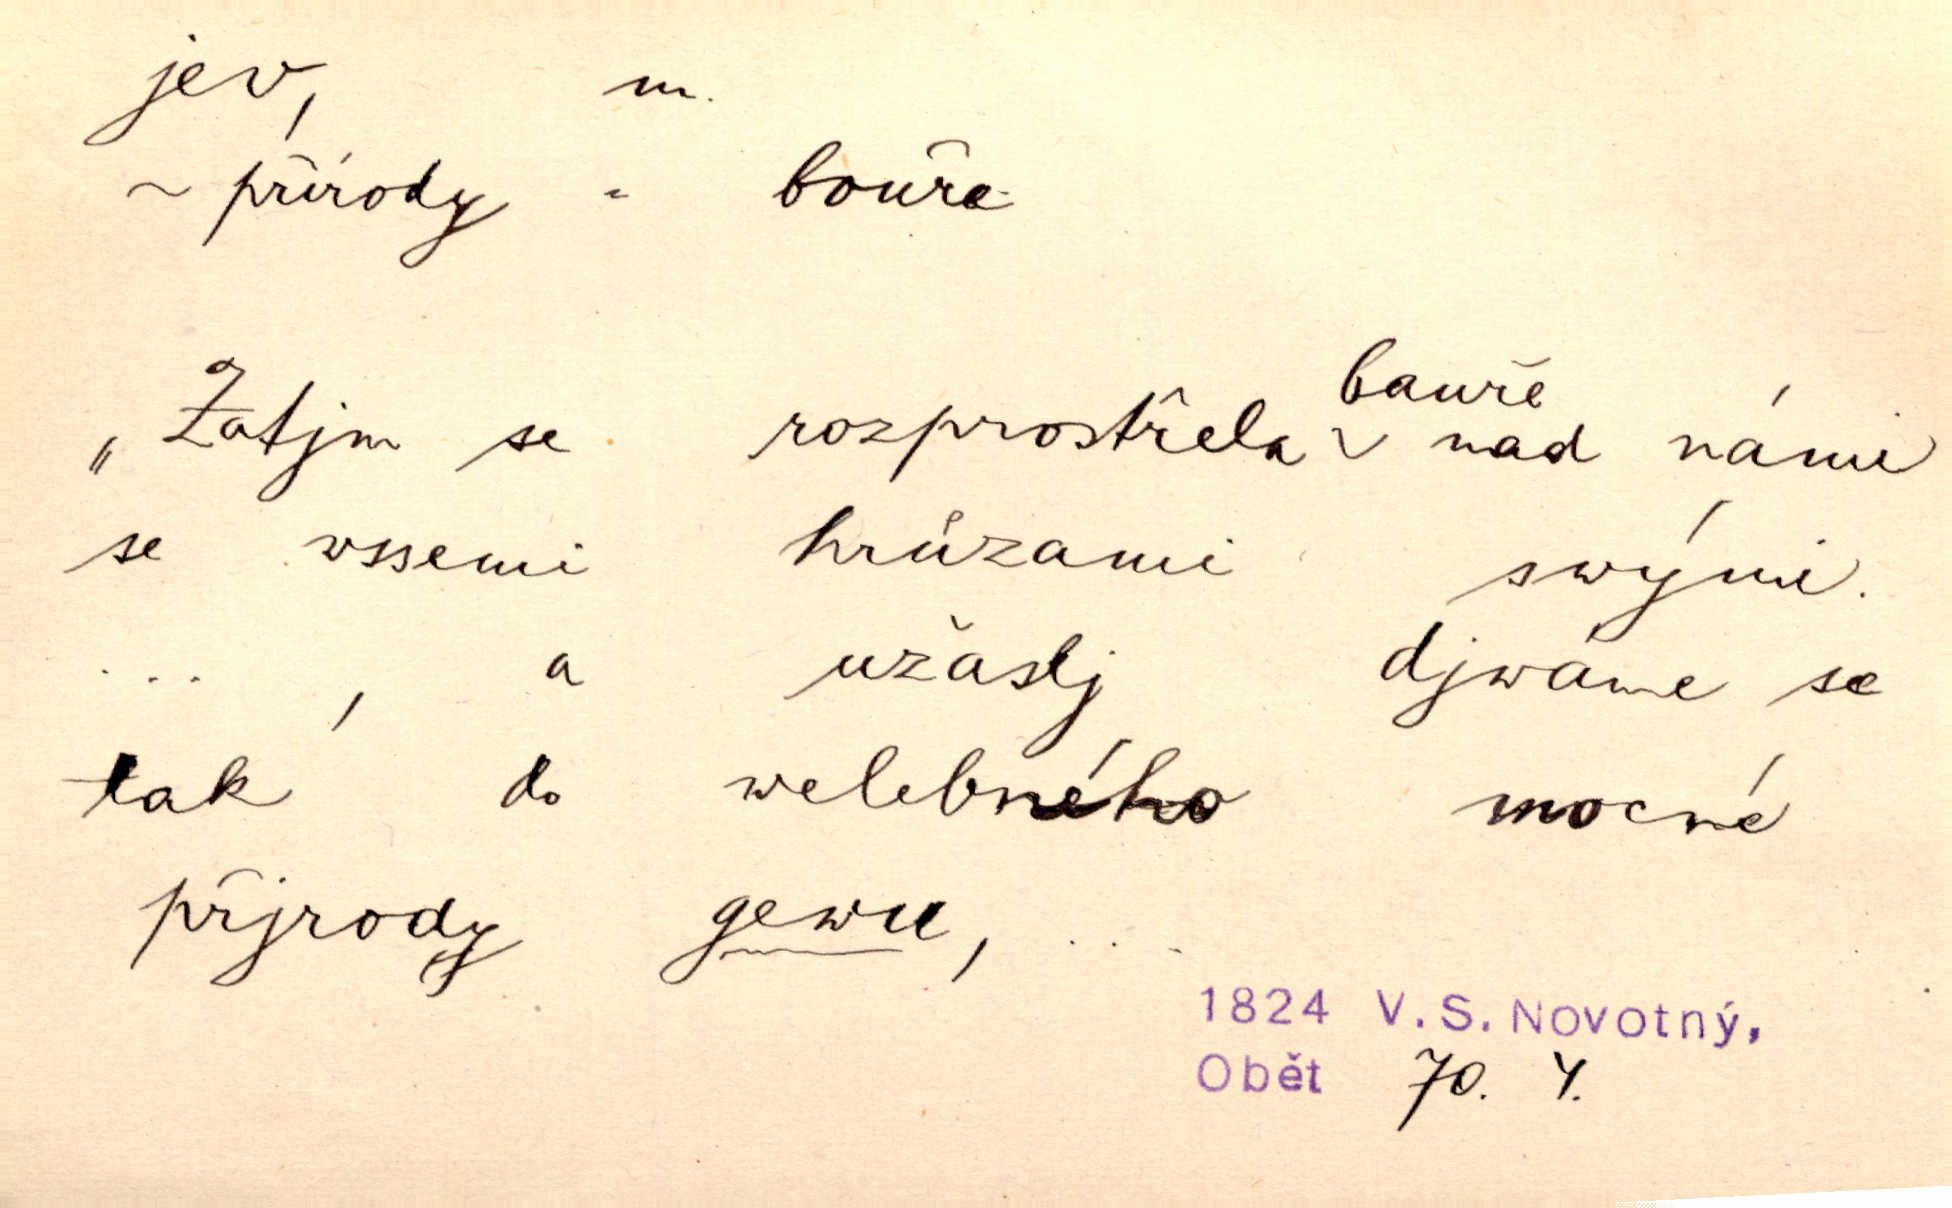 jev, m.
~ přírody = bouře
„Zatjm se rozprostřela bauře nad námi
se wssemi hrůzami swými.
..., a užaslj djwáme se
tak do welebného mocné
přjrody gewu, ...
1824 V. S. Novotný,
Obět 70. Y.